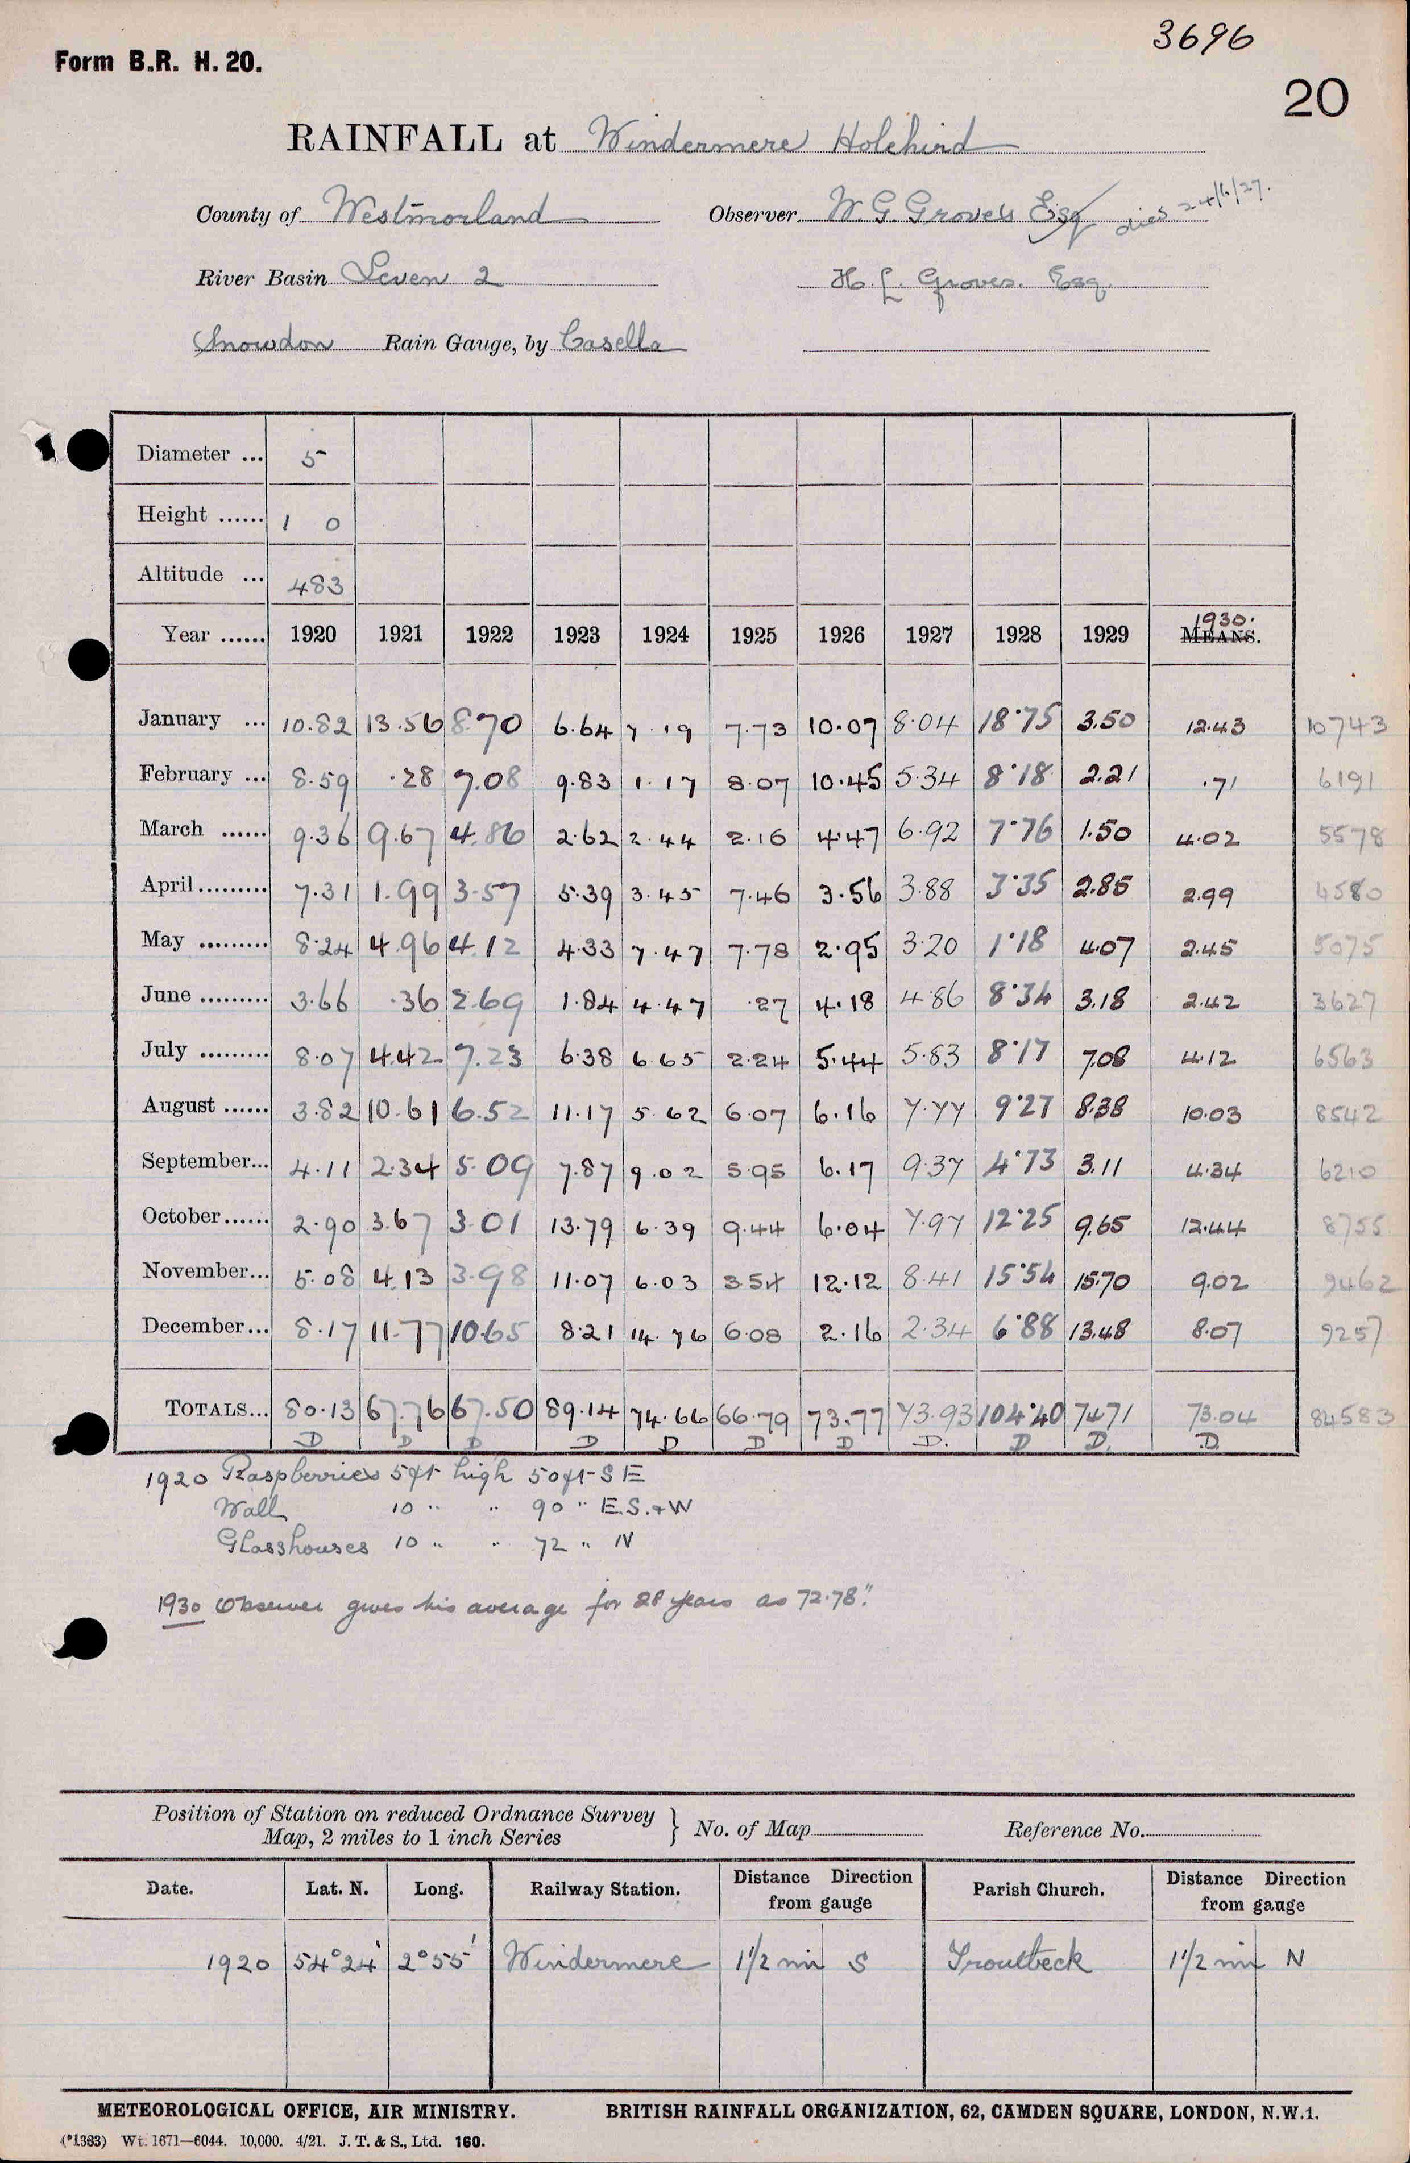 3696
Form B.R. H. 20.
20
RAINFALL at Windermere Holehird
County of Westmorland Observer W G Groves Esq died 24/6/27.
River Basin Leven 2 H. L. Groves. Esq.
Snowdon Rain Gauge, by Casella
Diameter ... 5
Height ...... 1 0
Altitude ... 483
Year ...... 1920 1921 1922 1923 1924 1925 1926 1927 1928 1929 MEANS. 1930.
January ... 10.82 13.56 8.70 6.64 7.19 7.73 10.07 8.04 18.75 3.50 12.43 10743
February ... 8.59 .28 7.08 9.83 1.17 8.07 10.45 5.34 8.18 2.21 .71 6191
March ...... 9.36 9.67 4.86 2.62 2.44 2.16 4.47 6.92 7.76 1.50 4.02 5578
April ......... 7.31 1.99 3.57 5.39 3.45 7.46 3.56 3.88 3.35 2.85 2.99 4580
May ......... 8.24 4.96 4.12 4.33 7.47 7.78 2.95 3.20 1.18 4.07 2.45 5075
June ......... 3.66 .36 2.69 1.84 4.47 .27 4.18 4.86 8.34 3.18 2.42 3627
July ......... 8.07 4.42 7.23 6.38 6.65 2.24 5.44 5.83 8.17 7.08 4.12 6563
August ...... 3.82 10.61 6.52 11.17 5.62 6.07 6.16 7.77 9.27 8.38 10.03 8542
September... 4.11 2.34 5.09 7.87 9.02 5.95 6.17 9.37 4.73 3.11 4.34 6210
October ...... 2.90 3.67 3.01 13.79 6.39 9.44 6.04 7.97 12.25 9.65 12.44 8755
November... 5.08 4.13 3.98 11.07 6.03 3.54 12.12 8.41 15.54 15.70 9.02 9462
December... 8.17 11.77 10.65 8.21 14.76 6.08 2.16 2.34 6.88 13.48 8.07 9257
TOTALS... 80.13 67.76 67.50 89.14 74.66 66.79 73.77 73.93 104.40 74.71 73.04 84583
D D D D D D D D. D D. D.
1920 Raspberries 5ft high 50ft SE
Wall 10 " " 90 " E.S. + W
Glasshouses 10 " " 72 " N
1930 Observer gives his average for 28 years as 72.78".
Position of Station on reduced Ordnance Survey
Map, 2 miles to 1 inch Series } No. of Map Reference No.
Date. Lat. N. Long. Railway Station. Distance Direction from gauge Parish Church. Distance Direction from gauge
1920 54°24' 2°55' Windermere 1½ mi S Troutbeck 1½ mi N
METEOROLOGICAL OFFICE, AIR MINISTRY. BRITISH RAINFALL ORGANIZATION, 62, CAMDEN SQUARE, LONDON, N.W.1.
(*1383) Wt. 1671—6044. 10,000. 4/21. J. T. & S., Ltd. 160.